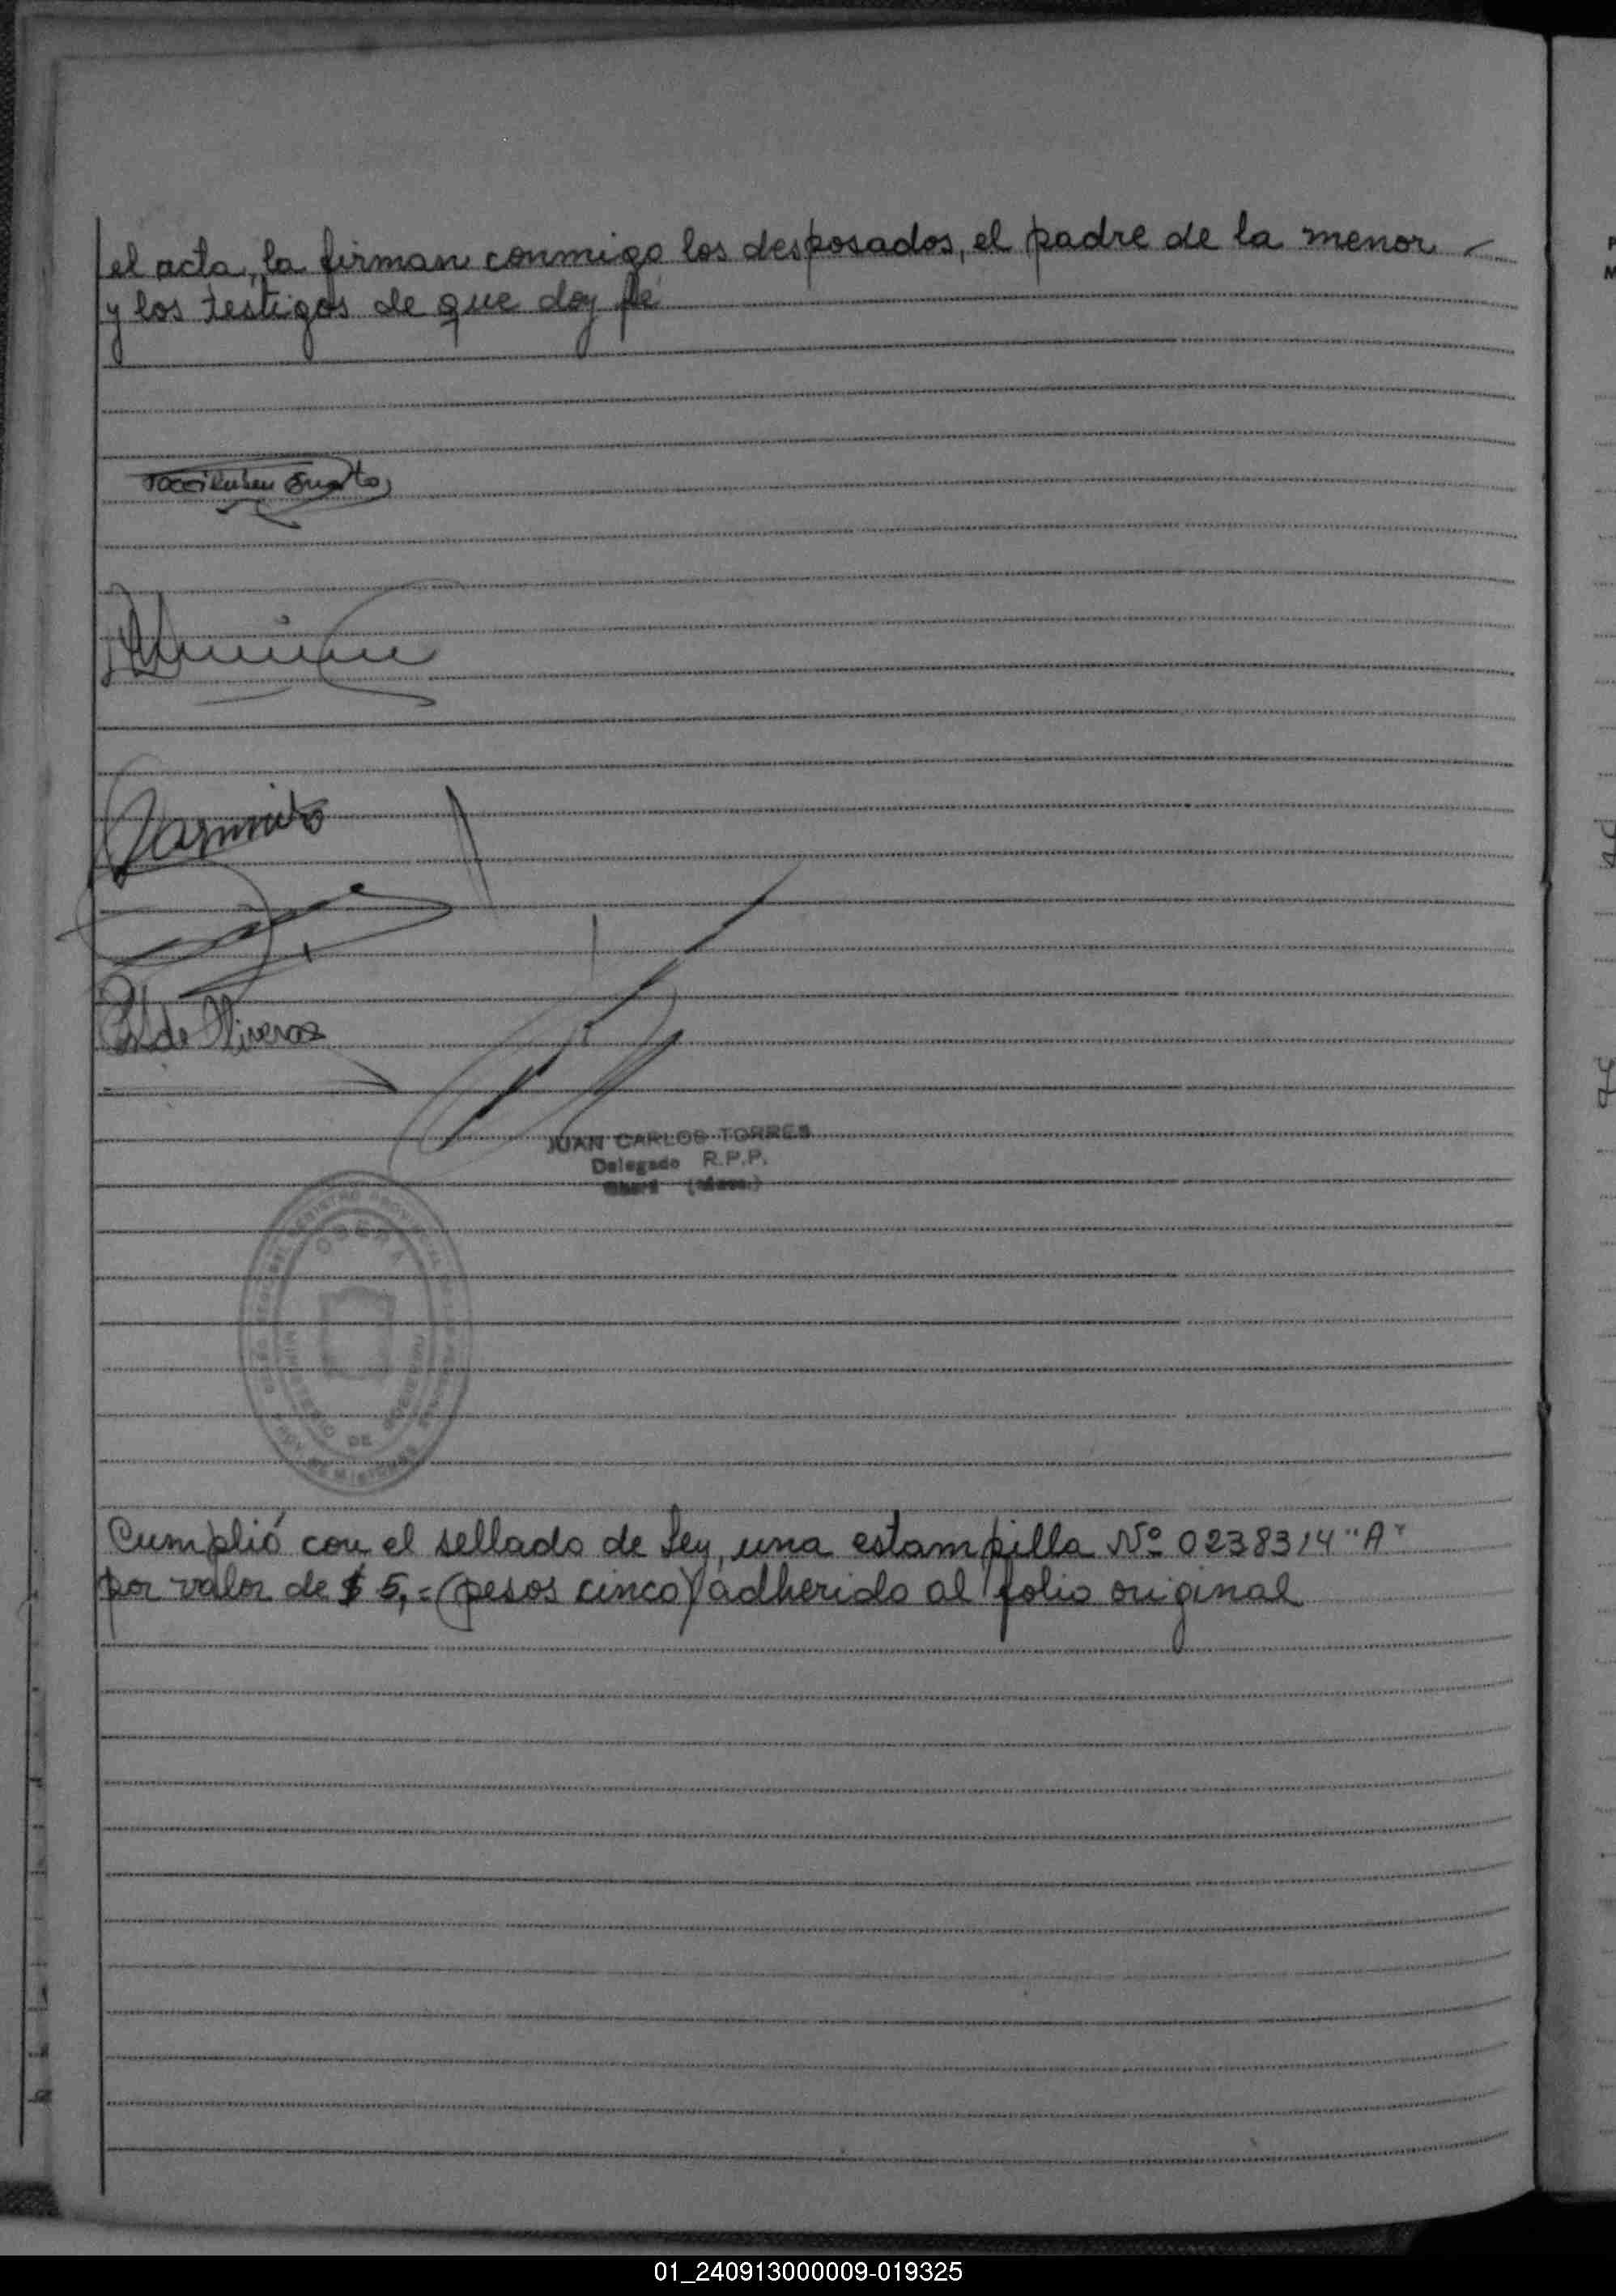 el acta, la firman conmigo los desposados, el padre de la menor
y los testigos de que doy fé
de Oliveras
JUAN CARLOS TORRES
Delegado R.P.P.
OBERA
MINISTERIO DE GOBIERNO
Cumplió con el sellado de Ley, una estampilla Nº 0238314 "A"
por valor de $ 5,= (pesos cinco) adherido al folio original
01_240913000009-019325